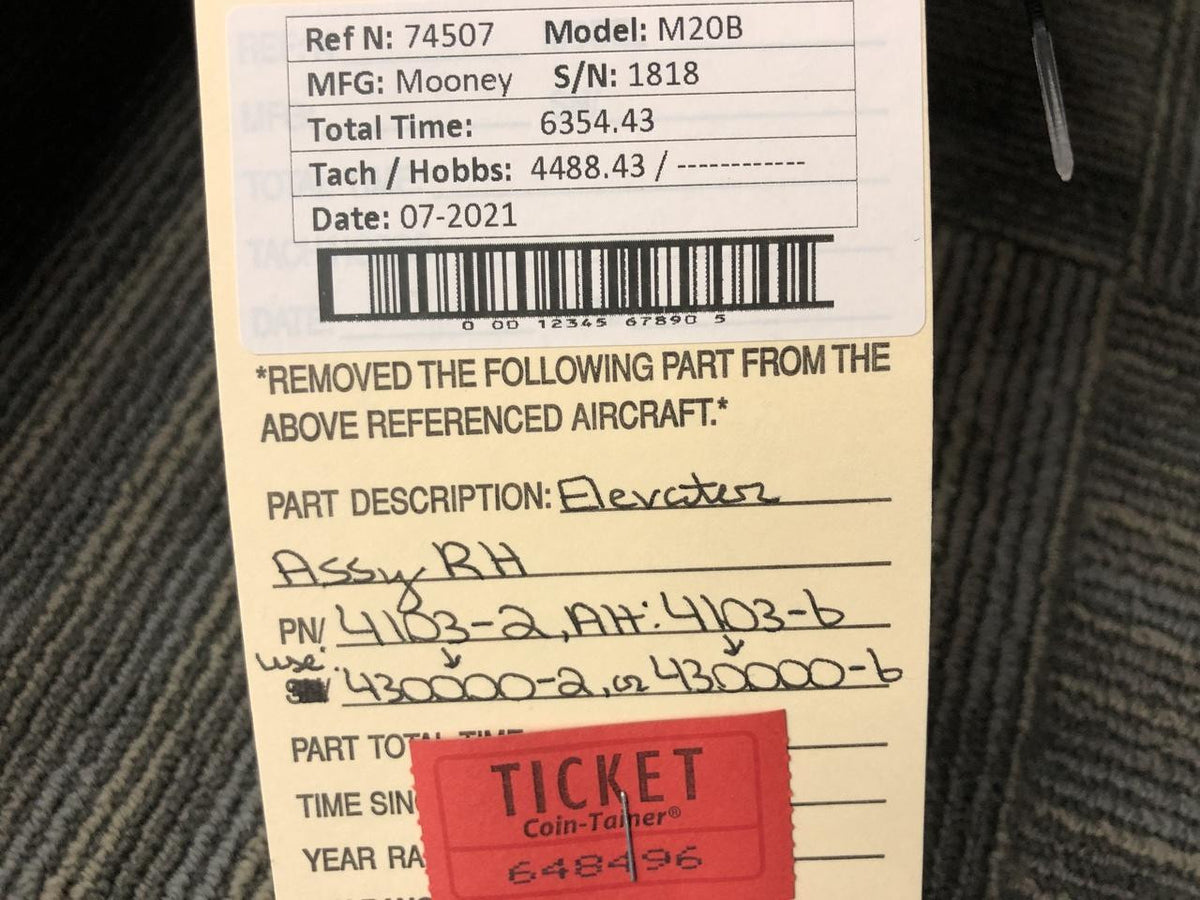 Ref N: 74507 Model: M20B
MFG: Mooney S/N: 1818
Total Time: 6354.43
Tach / Hobbs: 4488.43 / ------------
Date: 07-2021
0 00 12345 67890 5
*REMOVED THE FOLLOWING PART FROM THE
ABOVE REFERENCED AIRCRAFT.*
PART DESCRIPTION: Elevator
Assy RH
PN/ 4103-2, Alt: 4103-6
use: 430000-2, or 430000-6
PART TOTAL TIME
TIME SIN
YEAR RA
TICKET
Coin-Tainer®
648496